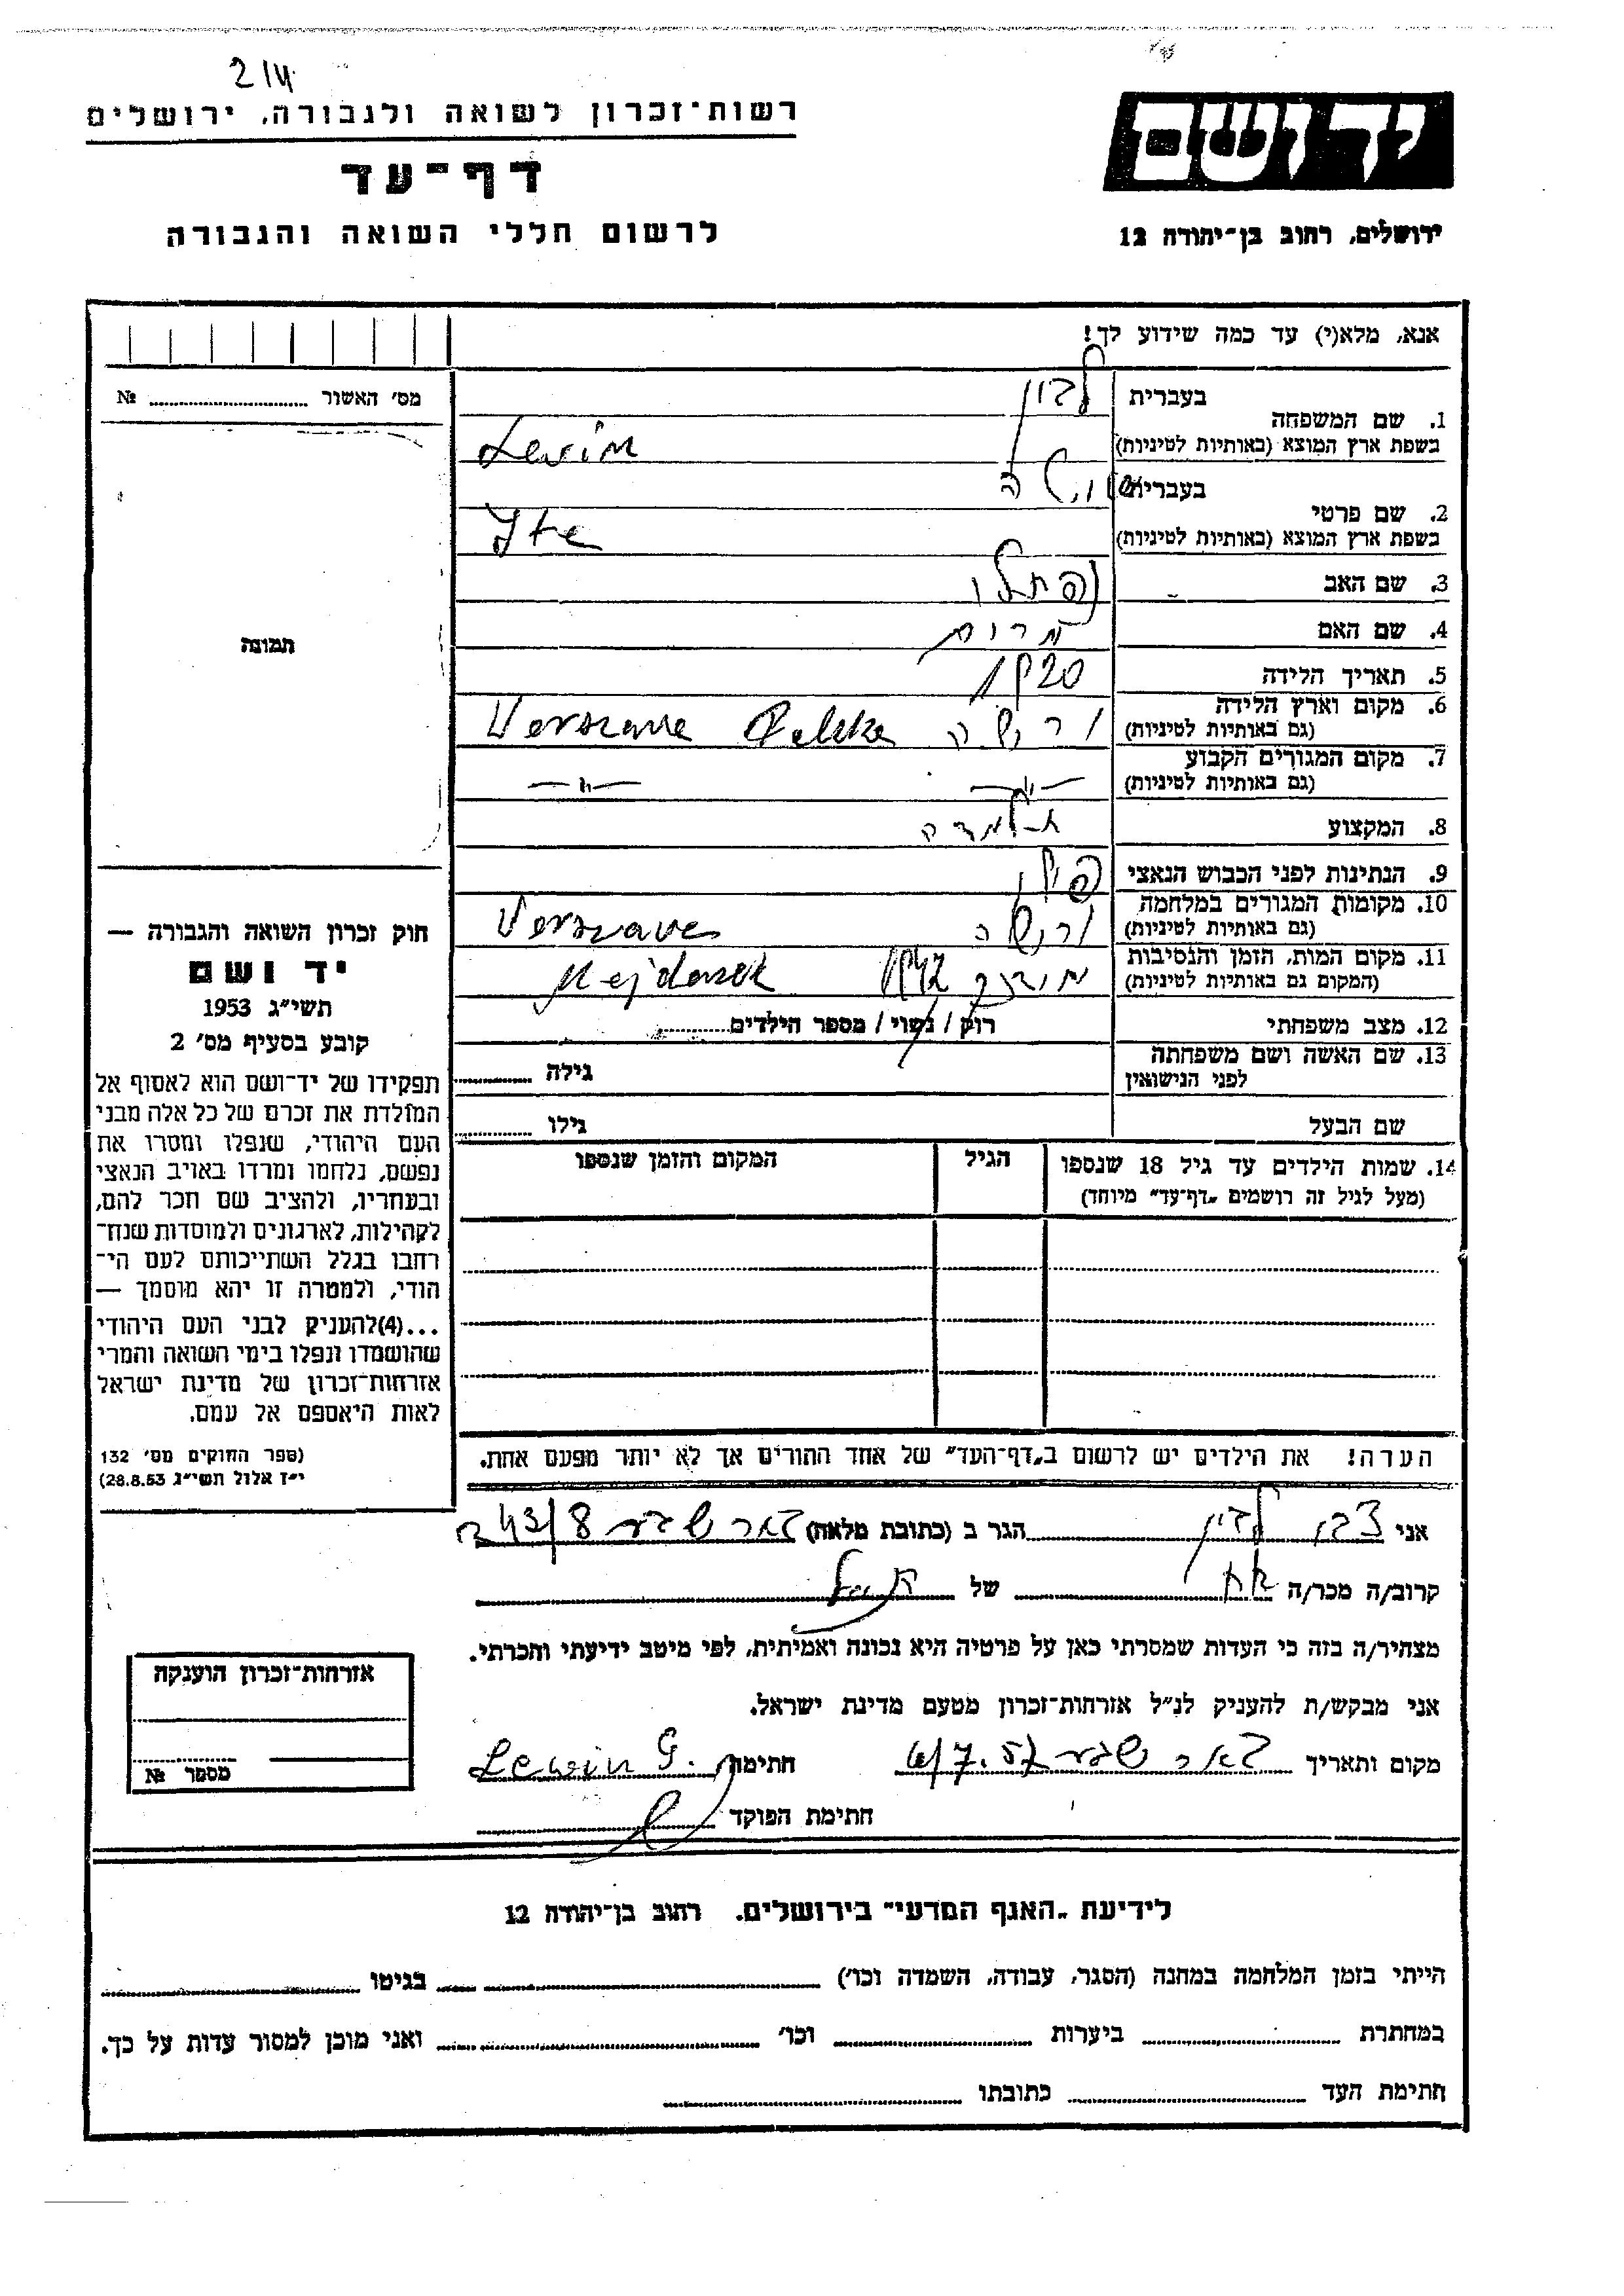 214
רשות־זכרון לשואה ולגבורה, ירושלים
דף־עד
לרשום חללי השואה והגבורה
ידושם
ירושלים, רחוב בן־יהודה 12
אנא, מלא(י) עד כמה שידוע לך!
מס' האשור № ........
תמונה
1. שם המשפחה בעברית לוין
בשפת ארץ המוצא (באותיות לטיניות) Levin
2. שם פרטי בעברית
בשפת ארץ המוצא (באותיות לטיניות) Ite
3. שם האב נפתלי
4. שם האם מרים
5. תאריך הלידה 1920
6. מקום וארץ הלידה ורשה Verszave Polske
(גם באותיות לטיניות)
7. מקום המגורים הקבוע —"— —"—
(גם באותיות לטיניות)
8. המקצוע תלמידה
9. הנתינות לפני הכבוש הנאצי פולין
10. מקומות המגורים במלחמה ורשה Verszave
(גם באותיות לטיניות)
11. מקום המות, הזמן והנסיבות 1942 Mejdanek
(המקום גם באותיות לטיניות)
12. מצב משפחתי רוק / נשוי / מספר הילדים........
13. שם האשה ושם משפחתה גילה ........
לפני הנישואין
שם הבעל גילו ........
14. שמות הילדים עד גיל 18 שנספו הגיל המקום והזמן שנספו
(מעל לגיל זה רושמים „דף־עד" מיוחד)
הערה! את הילדים יש לרשום ב„דף־העד" של אחד ההורים אך לא יותר מפעם אחת.
חוק זכרון השואה והגבורה —
יד ושם
תשי"ג 1953
קובע בסעיף מס' 2
תפקידו של יד־ושם הוא לאסוף אל
המולדת את זכרם של כל אלה מבני
העם היהודי, שנפלו ומסרו את
נפשם, נלחמו ומרדו באויב הנאצי
ובעוזריו, ולהציב שם וזכר להם,
לקהילות, לארגונים ולמוסדות שנח־
רחבו בגלל השתייכותם לעם הי־
הודי, ולמטרה זו יהא מוסמך —
...(4)להעניק לבני העם היהודי
שהושמדו ונפלו בימי השואה והמרי
אזרחות־זכרון של מדינת ישראל
לאות היאספם אל עמם.
(ספר החוקים מס' 132
י"ז אלול תשי"ג 28.8.53)
אני צבי לוין הגר ב (כתובת מלאה) באר שבע 243/8
קרוב/ה מכר/ה אח של
מצהיר/ה בזה כי העדות שמסרתי כאן על פרטיה היא נכונה ואמיתית, לפי מיטב ידיעתי והכרתי.
אני מבקש/ת להעניק לנ"ל אזרחות־זכרון מטעם מדינת ישראל.
מקום ותאריך באר שבע 7.57 חתימה Lewin G.
חתימת הפוקד
אזרחות־זכרון הוענקה
מספר №
לידיעת „האגף המדעי" בירושלים, רחוב בן־יהודה 12
הייתי בזמן המלחמה במחנה (הסגר, עבודה, השמדה וכו') ........ בגיטו ........
במחתרת ........ ביערות ........ וכו' ........ ואני מוכן למסור עדות על כך.
חתימת העד ........ כתובתו ........